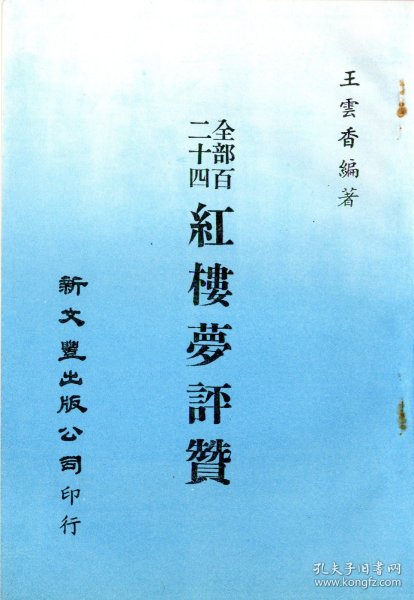 王雲香編著
全部百
二十四
紅樓夢評贊
新文豐出版公司印行
孔夫子旧书网
http://book.kongfz.com/